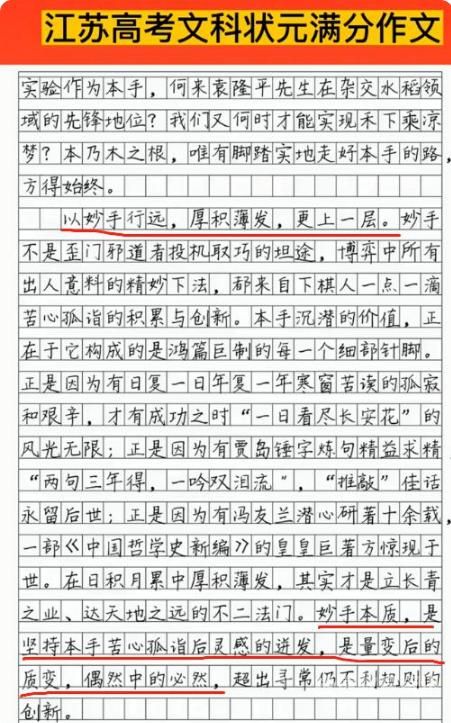 江苏高考文科状元满分作文
实验作为本手，何来袁隆平先生在杂交水稻领
域的先锋地位？我们又何时才能实现禾下乘凉
梦？本乃木之根，唯有脚踏实地走好本手的路，
方得始终。
以妙手行远，厚积薄发，更上一层。妙手
不是歪门邪道者投机取巧的坦途，博弈中所有
出人意料的精妙下法，都来自下棋人一点一滴
苦心孤诣的积累与创新。本手沉潜的价值，正
在于它构成的是鸿篇巨制的每一个细部针脚。
正是因为有日复一日年复一年寒窗苦读的孤寂
和艰辛，才有成功之时“一日看尽长安花”的
风光无限；正是因为有贾岛锤字炼句精益求精，
“两句三年得，一吟双泪流”，“推敲”佳话
永留后世；正是因为有冯友兰潜心研著十余载，
一部《中国哲学史新编》的皇皇巨著方惊现于
世。在日积月累中厚积薄发，其实才是立长青
之业、达天地之远的不二法门。妙手本质，是
坚持本手苦心孤诣后灵感的迸发，是量变后的
质变，偶然中的必然，超出寻常仍不利规则的
创新。